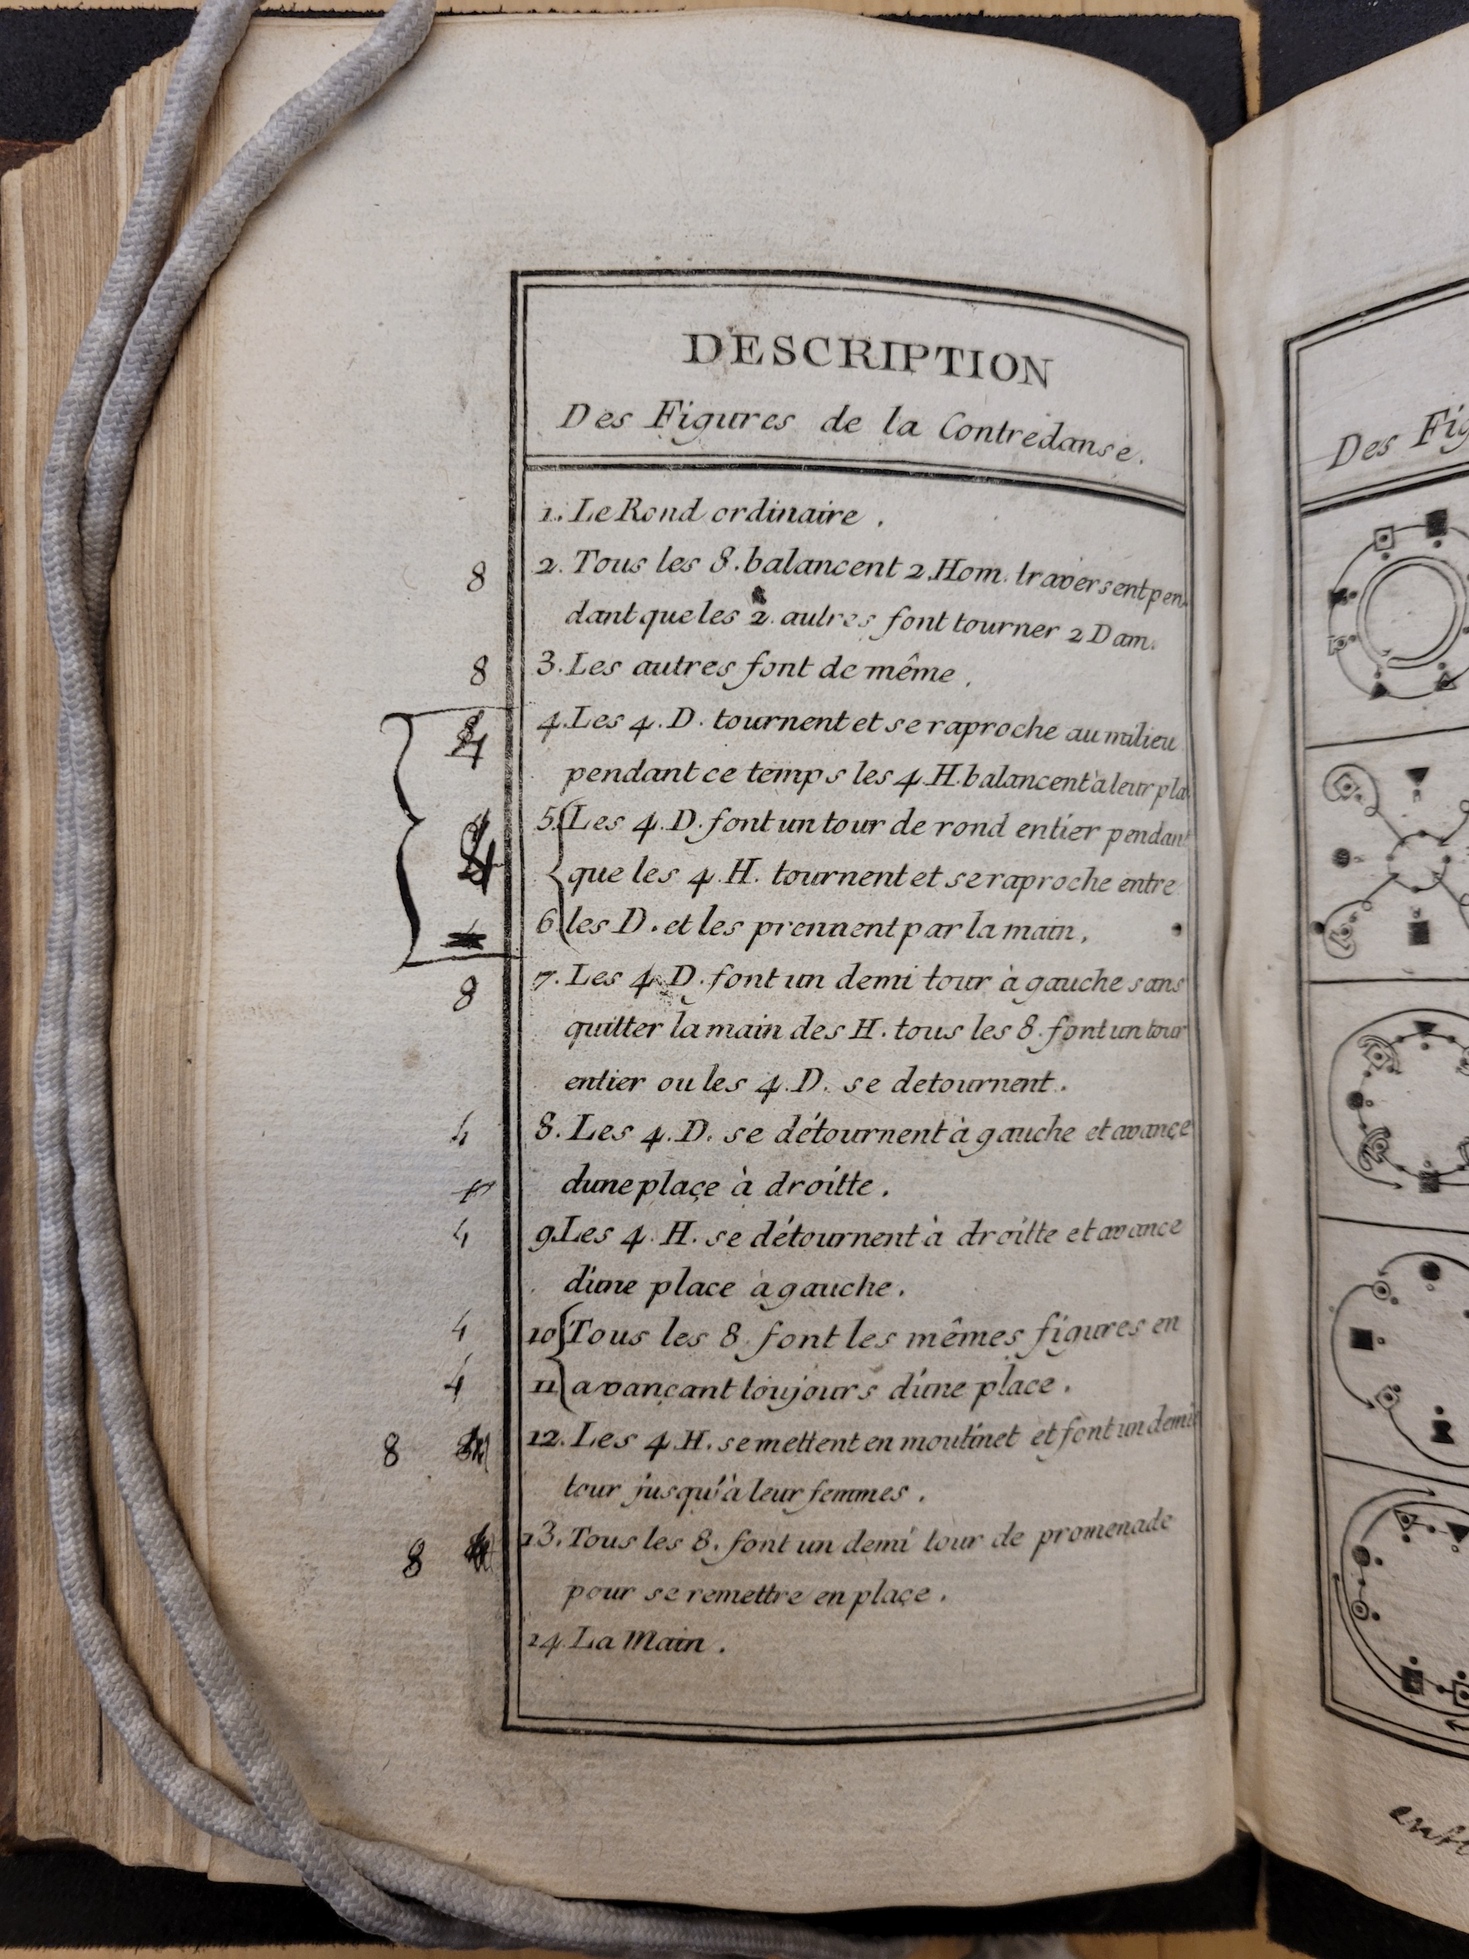 DESCRIPTION
Des Figures de la Contredanse.
1. Le Rond ordinaire.
8 2. Tous les 8. balancent 2. Hom. traversent pen
dant que les 2. autres font tourner 2 Dam.
8 3. Les autres font de même.
4 4. Les 4. D. tournent et se raproche au milieu
pendant ce temps les 4. H. balancent à leur pla
4 5. Les 4. D. font un tour de rond entier pendant
que les 4. H. tournent et se raproche entre
6 les D. et les prennent par la main.
8 7. Les 4. D. font un demi tour à gauche sans
quitter la main des H. tous les 8. font un tour
entier ou les 4. D. se detournent.
4 8. Les 4. D. se détournent à gauche et avançe
dune plaçe à droitte.
4 9. Les 4. H. se détournent à droitte et avance
d'une place à gauche.
4 10 Tous les 8. font les mêmes figures en
4 11 avançant toujours d'une place.
8 12. Les 4. H. se mettent en moulinet et font un demi
tour jusqu'à leur femmes.
8 13. Tous les 8. font un demi tour de promenade
pour se remettre en plaçe.
14. La Main.
Des Fig